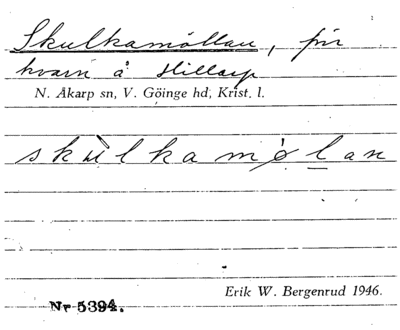 Skulkamöllan, för
kvarn å Hillarp
N. Åkarp sn, V. Göinge hd, Krist. l.
skùlkamølan
Erik W. Bergenrud 1946.
Nr 5394.